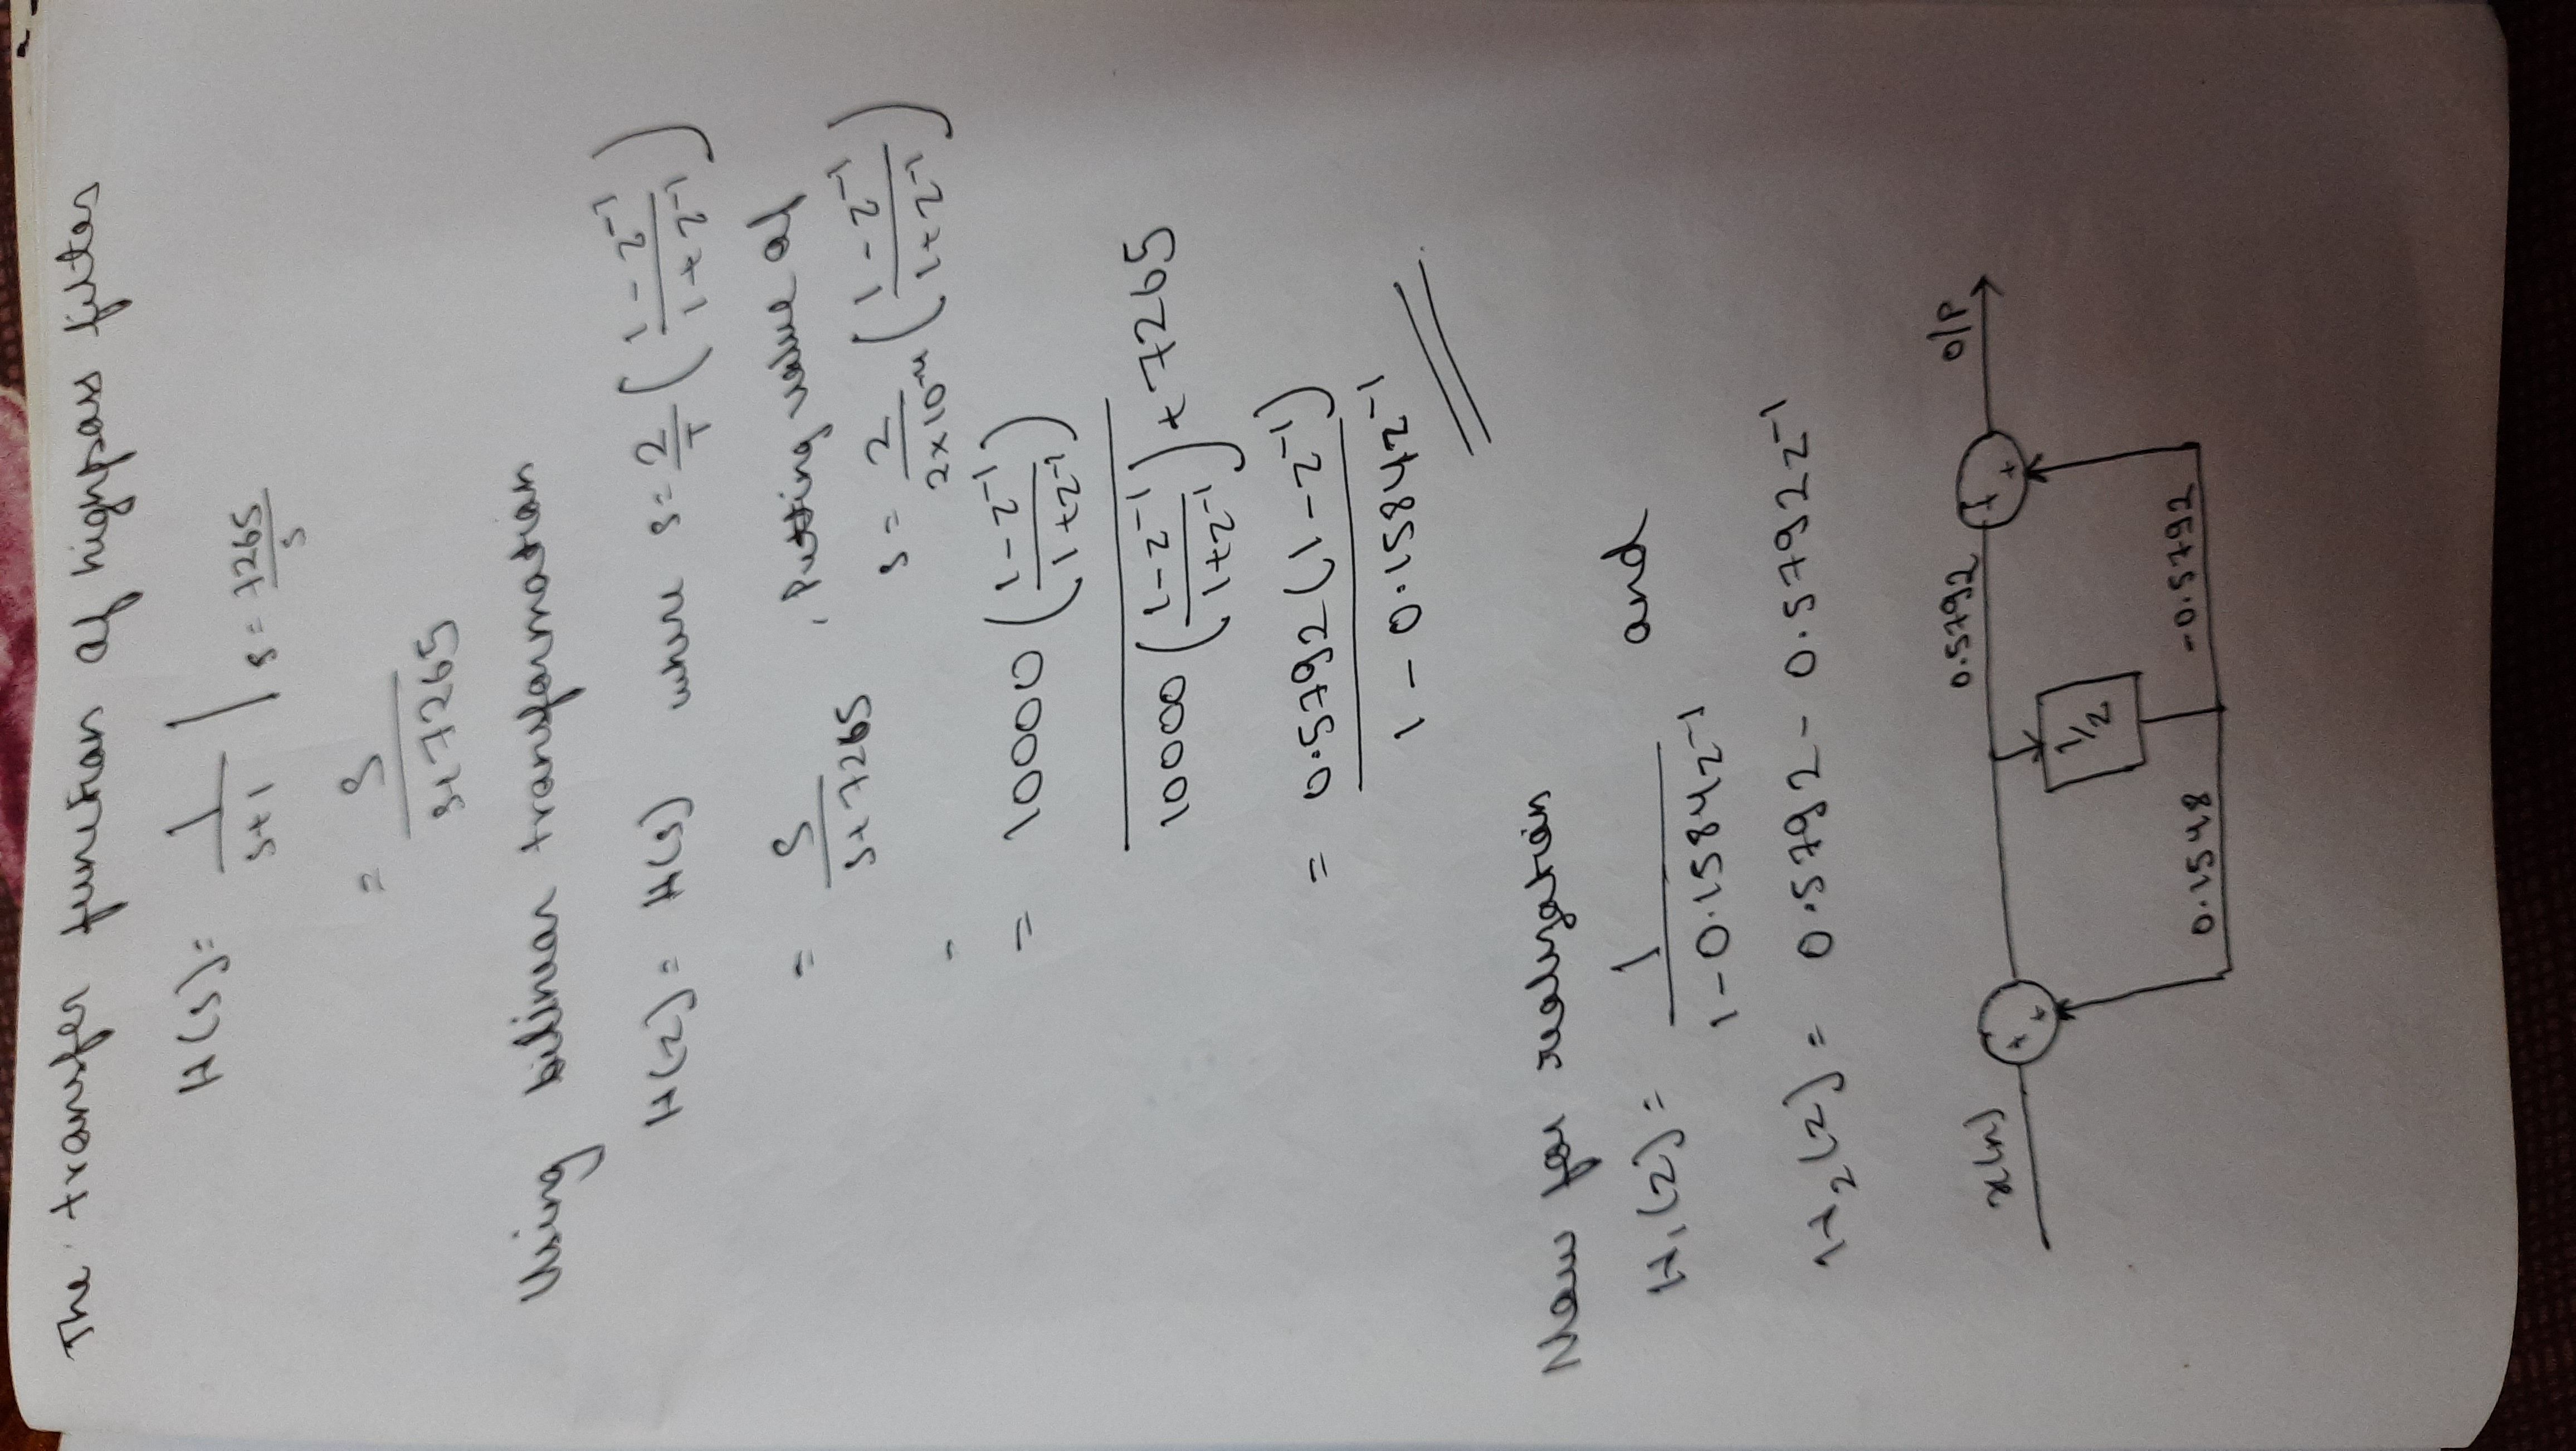 The transfer function of highpass filter
H(s) = 1/(s+1) | s = 7265/s
= s/(s+7265)
Using bilinear transformation
H(z) = H(s) where s = 2/T ( (1 - z⁻¹)/(1 + z⁻¹) )
= s/(s+7265) , Putting value of
s = 2/(2×10⁻⁴) ( (1 - z⁻¹)/(1 + z⁻¹) )
=
= 10000 ( (1 - z⁻¹)/(1 + z⁻¹) )
/ 10000 ( (1 - z⁻¹)/(1 + z⁻¹) ) + 7265
= 0.5792 (1 - z⁻¹)
/ 1 - 0.1584z⁻¹
Now for realization
H₁(z) = 1/(1 - 0.1584z⁻¹) and
H₂(z) = 0.5792 - 0.5792z⁻¹
x(n) + + 0.5792 + + O/P
1/z
0.1548 -0.5792